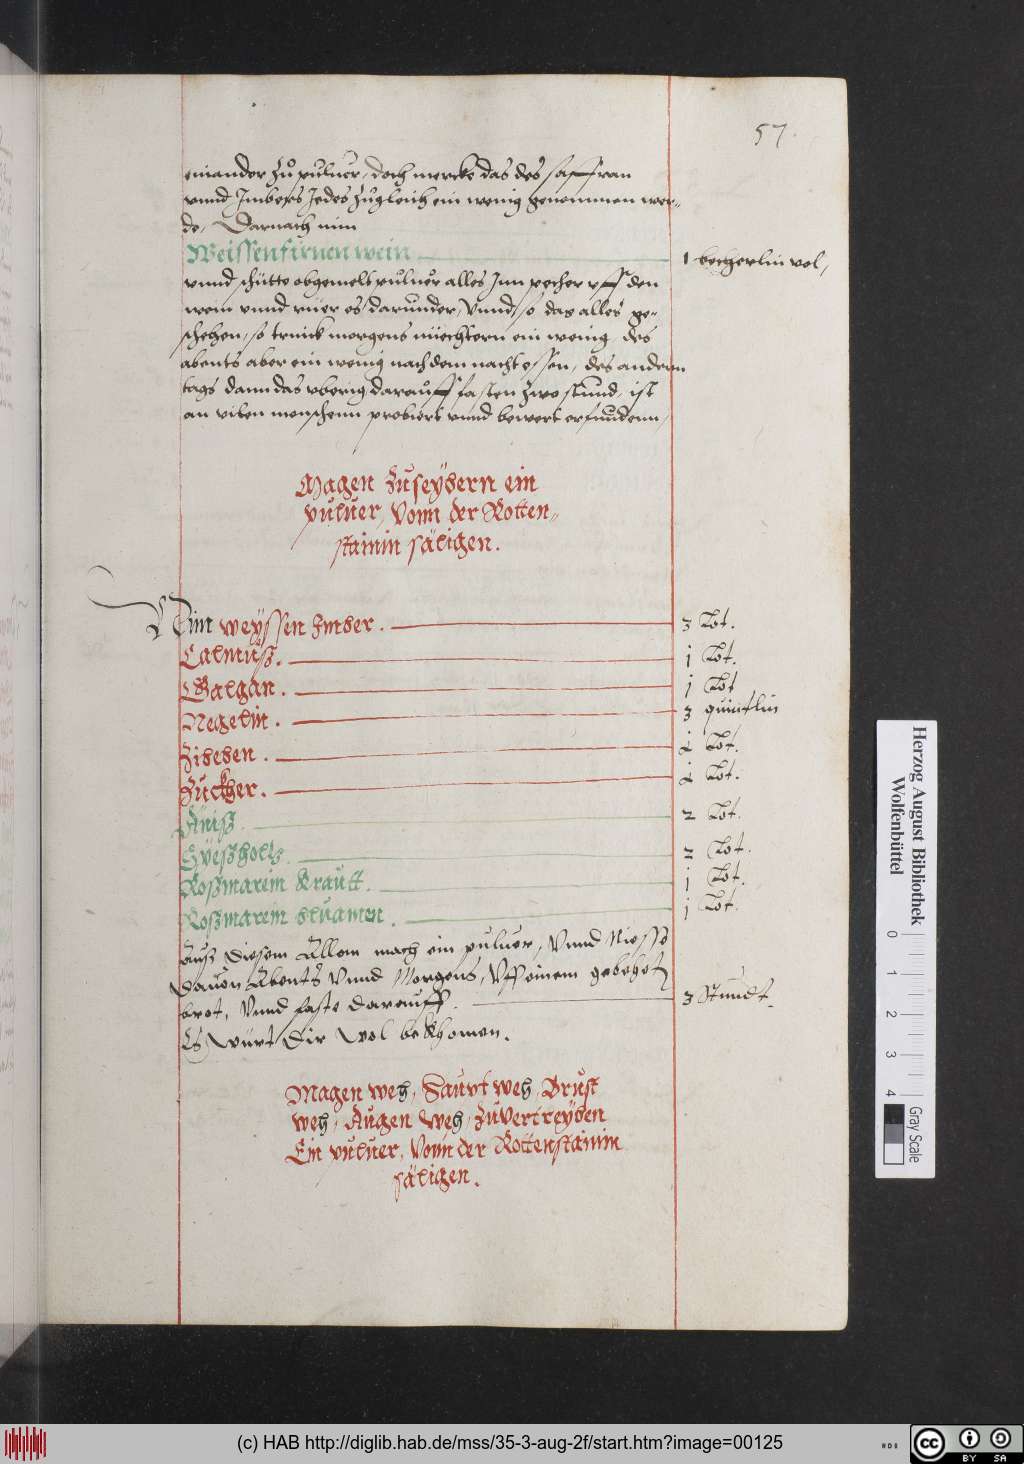 57.
einander zů puluer, doch mercke das des saffran
vnnd Imbers Jedes zůgleich ein wenig genommen wer=
de, Darnach nim
Weissen firnen wein 1 becherlin vol,
vnnd schütte obgemelt puluer alles Inn pecher vff den
wein vnnd rüer es darunder, Vnnd so das alles ge=
schehen, so trinck morgens niechtern ein wenig des
abents aber ein wenig nach dem nacht essen, des andern
tags dann das vberig darauff fasten zwo stund, ist
an vilen menschenn probiert vnnd bewert erfundenn,
Magen zuseybern ein
puluer, Vonn der Rotten=
stainin säligen.
Nim weyssen Imber. 3 Lot.
Calmuß. j Lot.
Galgan. j Lot
Negelin. 3 quintlin
Zibeben. Lot.
Zuckher. Lot.
Äniß. 2 Lot.
Syeßholtz. 2 Lot.
Roßmarein Krautt. j Lot.
Roßmarein bluamen. j Lot.
Auß diesem Allem mach ein puluer, Vnnd Niesse
dauon Abents Vnnd Morgens, Vff einem gebehet
brot, Vnnd faste darauff. 3 Stundt.
Es würt Dir wol bekhomen.
Magen weh, Haupt weh, Brust
weh, Augen weh, zuvertreyben
Ein puluer, Vonn der Rottenstainin
säligen.
Herzog August Bibliothek
Wolfenbüttel
0 1 2 3 4
Gray Scale
(c) HAB http://diglib.hab.de/mss/35-3-aug-2f/start.htm?image=00125
cc BY SA